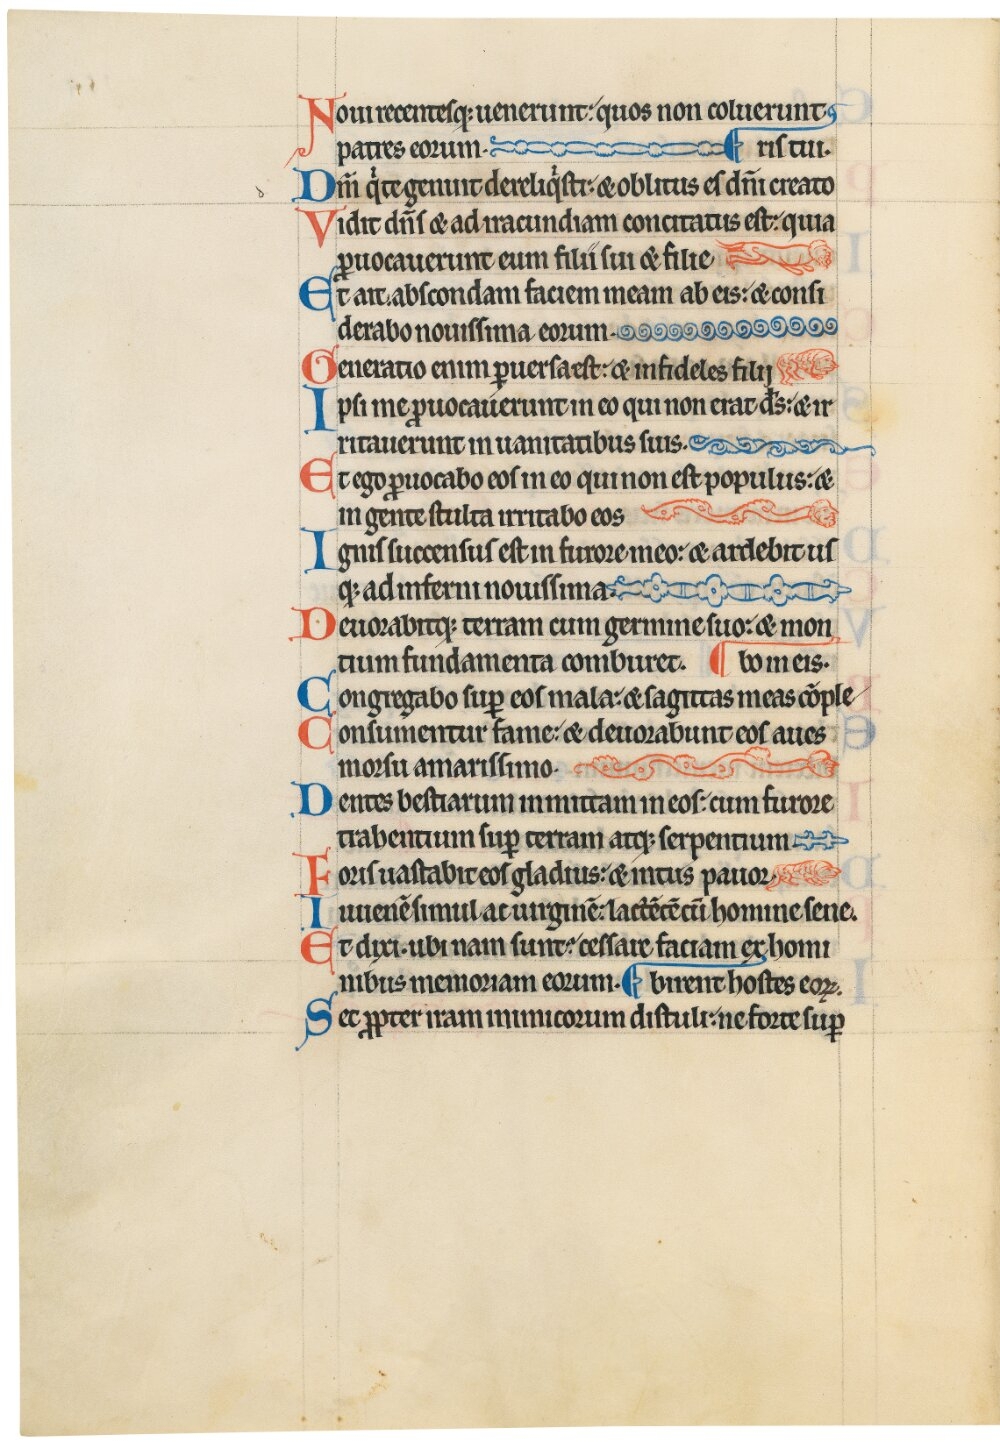 Noui recentesq; uenerunt: quos non coluerunt
patres eorum. ris tui.
Dm̄ q̇ te genuit dereliq̇sti: & oblitus es dñi creato
Vidit dñs & ad iracundiam concitatus est: quia
ꝓuocauerunt eum filii sui & filie.
Et ait, abscondam faciem meam ab eis: & consi
derabo nouissima eorum.
Generatio enim ꝑuersa est: & infideles filij
Ipsi me ꝓuocauerunt in eo qui non erat ds̄: & ir
ritauerunt in uanitatibus suis.
Et ego ꝓuocabo eos in eo qui non est populus: &
in gente stulta irritabo eos
Ignis succensus est in furore meo: & ardebit us
q; ad inferni nouissima.
Deuorabitq; terram cum germine suo: & mon
tium fundamenta comburet. bo in eis.
Congregabo suꝑ eos mala: & sagittas meas cōple
Consumentur fame: & deuorabunt eos aues
morsu amarissimo.
Dentes bestiarum inmittam in eos: cum furore
trabentium suꝑ terram atq; serpentium
Foris uastabit eos gladius: & intus pauor.
Iuuenē simul ac uirginē: lactētē cū homine sene.
Et dixi. ubi nam sunt: cessare faciam ex homi
nibus memoriam eorum. birent hostes eoꝝ.
Set ꝓpter iram inimicorum distuli: ne forte suꝑ